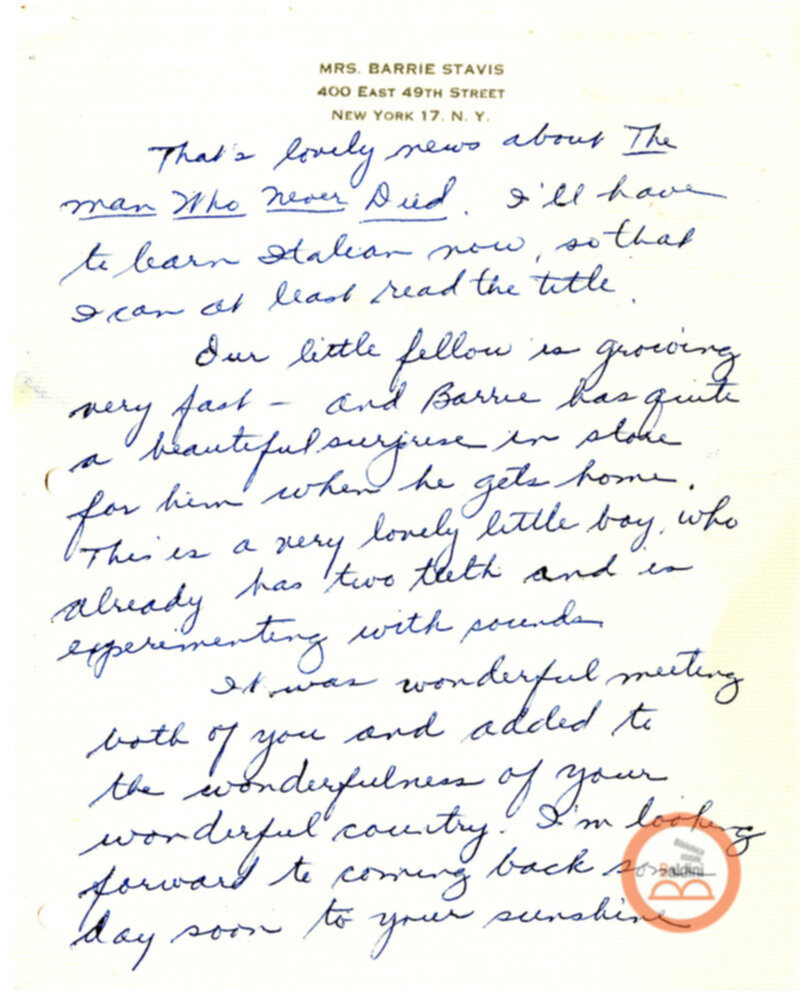 MRS. BARRIE STAVIS
400 EAST 49TH STREET
NEW YORK 17. N. Y.
That's lovely news about The
man Who Never Died. I'll have
to learn Italian now, so that
I can at least read the title.
Our little fellow is growing
very fast – and Barrie has quite
a beautiful surprise in store
for him when he gets home.
This is a very lovely little boy, who
already has two teeth and is
experimenting with sounds
It was wonderful meeting
both of you and added to
the wonderfulness of your
wonderful country. I'm looking
forward to coming back some
day soon to your sunshine
Biblioteca
statale
Baldini